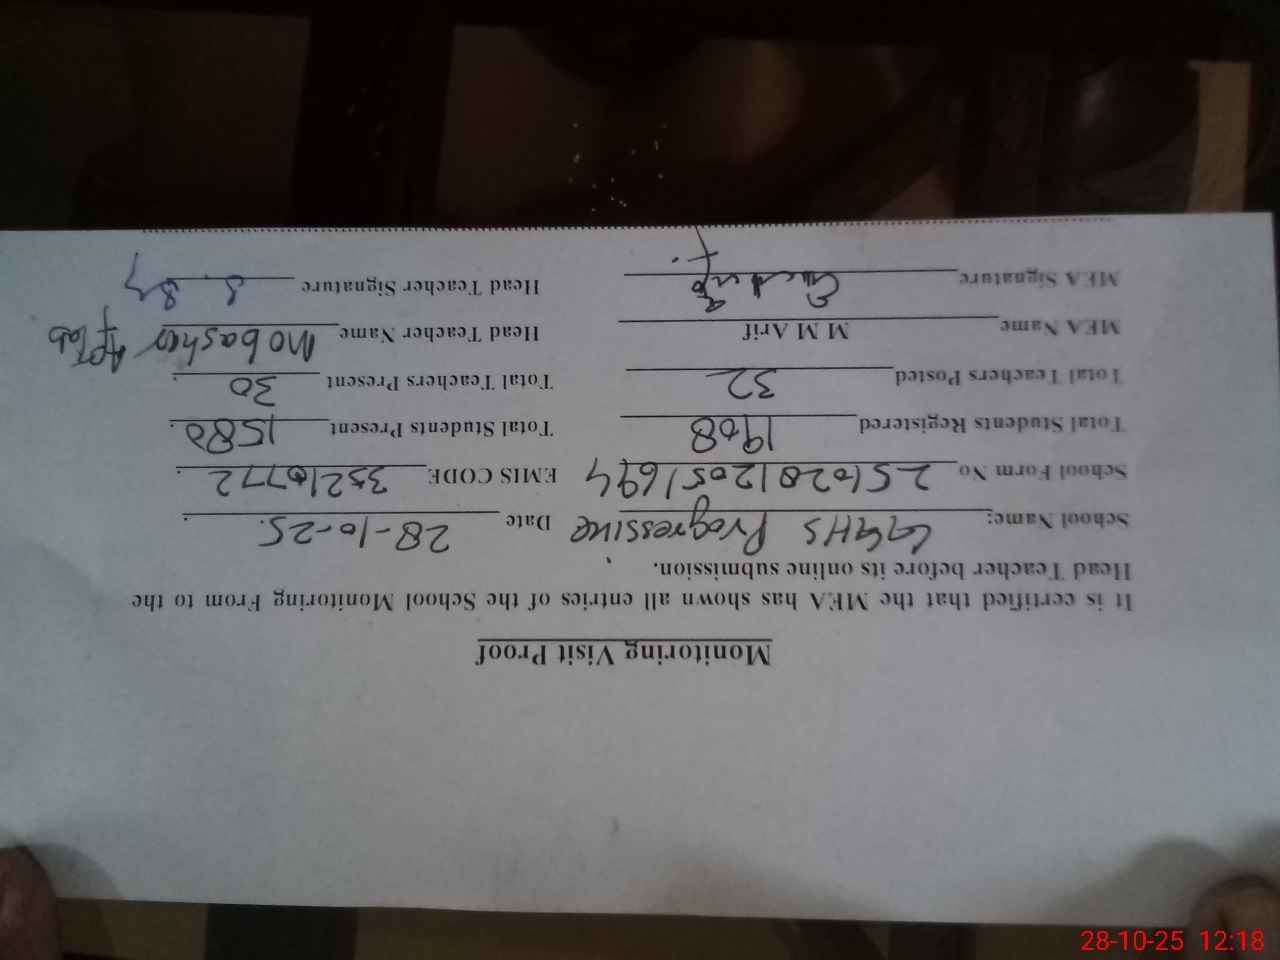 Monitoring Visit Proof
It is certified that the MEA has shown all entries of the School Monitoring From to the
Head Teacher before its online submission.
School Name: GGHS Progressive Date 28-10-25.
School Form No 25102812051694 EMIS CODE 35210772
Total Students Registered 1908 Total Students Present 1580
Total Teachers Posted 32 Total Teachers Present 30
MEA Name M M Arif Head Teacher Name Mobasher Aftab
MEA Signature Head Teacher Signature
28-10-25 12:18